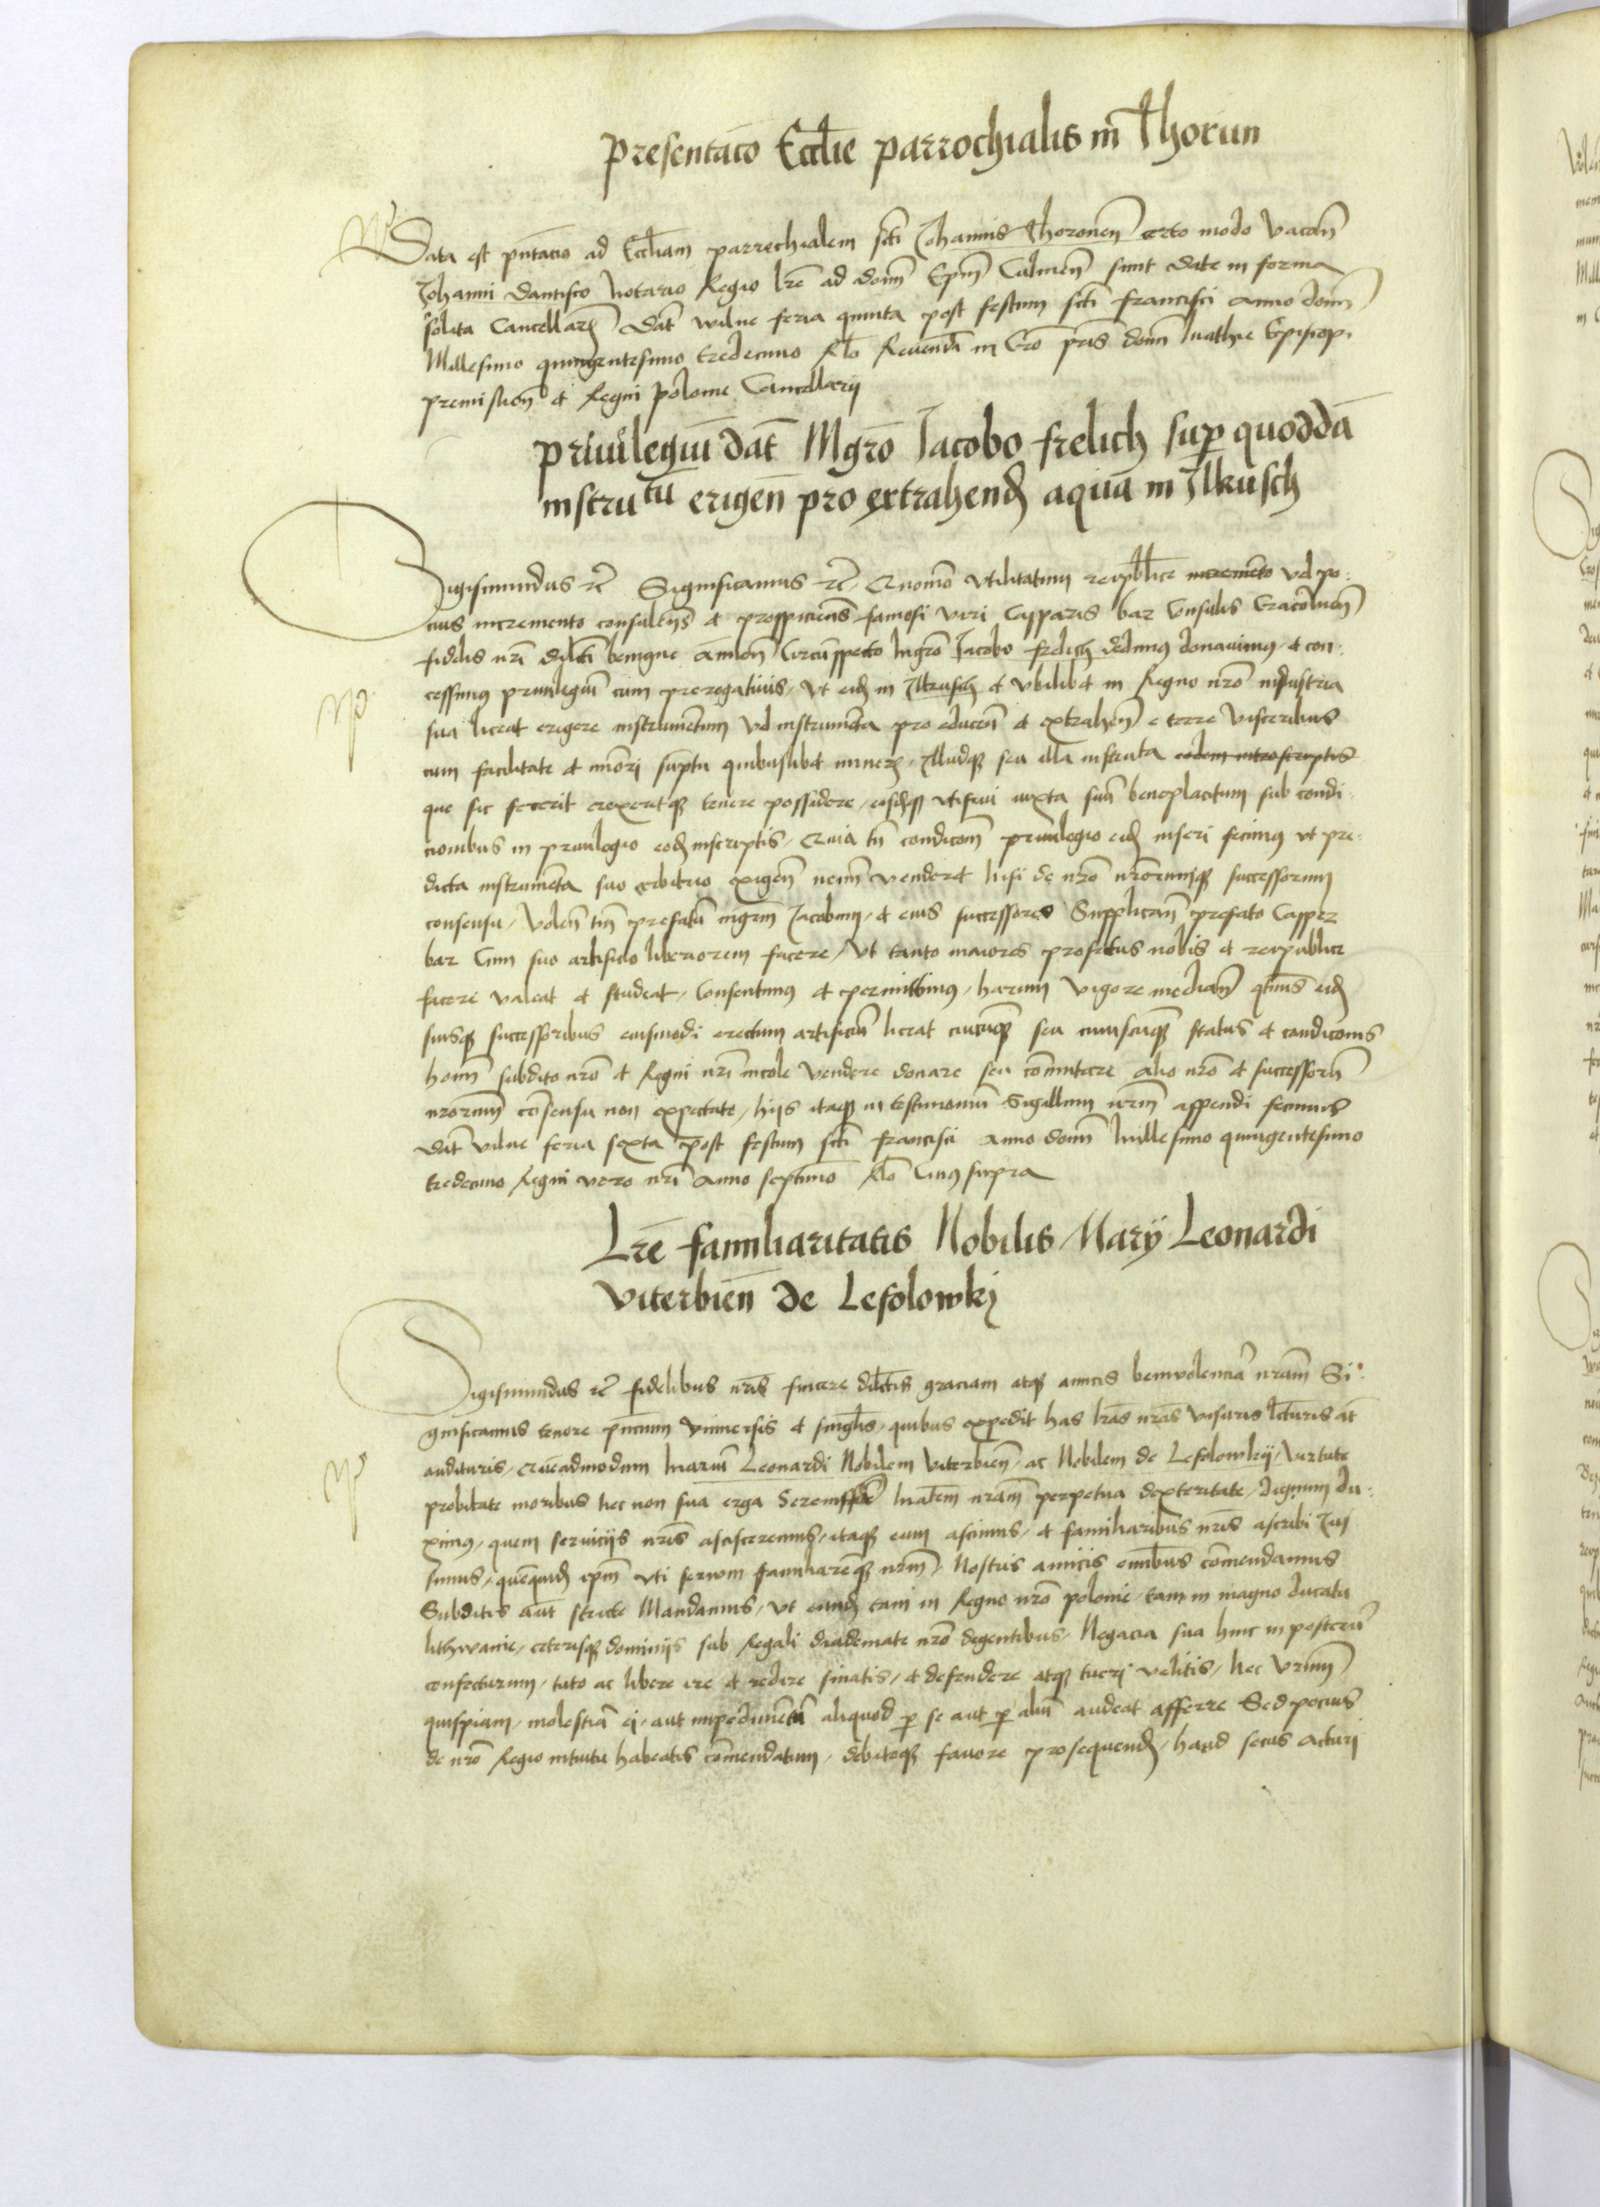 Presentatio Ecclie parrochialis in Thorun
Data est pntacio ad Eccliam parrechialem scti Johannis Thoronen certo modo vacan
Johanni Dantisco Notario Regio lre ad dnm Epm Culmen sunt date in forma
solita Cancellarie Dat wilne feria quinta post festum scti Francisci Anno domi
Millesimo quingentesimo tredecimo Rlo Reuendi in Cro pris domi Mathie Episcopi
premislien et Regni Polonie Cancellarij
Priuilegiu dat Mgro Jacobo Frelich sup quodda
instrutu erigen pro extrahend aqua in Ilkusch
Sigismundus rc Significamus rc Quomo vtilitatum reipublice incremento vel po
cius incremento consulens et prospiciens famosi viri Casparis bar Consulis Cracouien
fidelis nri dilcti benigne Circumspecto Mgro Jacobo Frelich dedimus donauimus et con
cessimus priuilegiu cum prerogatiuis vt eid in Ilkusch et vbilibet in Regno nro industria
sua liceat erigere instrumentum vel instrumenta pro educen et extrahen e terre visceribus
cum facilitate et minori suptu quibuslibet miner Illudq seu illa instruta eodem introscriptis
que sic fecerit erexeritq tenere possidere eisdq vtifrui iuxta suu beneplacitum sub condi
cionibus in priuilegio eod inscriptis Quia tn condicom priuilegio eid inseri fecimus vt pre
dicta instrumenta suo arbitrio exigen nemini venderet Nisi de nro nrorumq successorum
consensu Volen tn prefatu mgrm Jacobum et eius successores Supplican prefato Casper
bar Cum suo artificio liberiorem facere Vt tanto maiores profectus nobis et reipublice
facere valeat et studeat Consentimus et permittimus harum vigore median qtinus eid
suisq successoribus eiusmodi erectum artificiu liceat cuicuq seu cuiuscuq status et condicionis
homi subdito nro et Regni nri incole vendere donare seu commutare alio nro et successoru
nrorum consensu non expectato hijs itaq in testimoniu Sigillum nrm appendi fecimus
Dat vilne feria sexta post festum scti Francisci Anno domi Millesimo quingentesimo
tredecimo Regni vero nri Anno septimo Rlo Cuius supra
Lre familiaritatis Nobilis Marij Leonardi
Viterbien de Lesolowkj
Sigismundus rc fidelibus nris sincere dilctis graciam atq amicis beniuolencia nram Si
gnificamus tenore pntium Vniuersis et singlis quibus expedit has lras nras visuris lecturis at
audituris Queadmodum Mariu Leonardi Nobilem Viterbien ac Nobilem de Lesolowkij Virtute
probitate moribus nec non sua erga Serenissima Matem nram perpetua dexteritate dignum du
ximus quem seruicijs nris ascisceremus itaq eum asciuimus et familiaribus nris ascribi Jus
simus quequid ipm vti seruum familiaremq nrm Nostris amicis omibus comendamus
Subditis aut stricte Mandamus vt eund tam in Regno nro polonie tam in magno ducatu
lithwanie ceterisq dominijs sub Regali diademate nro degentibus Negacia sua hinc in posteru
confecturum tuto ac libere ire et redire sinatis et defendere atq tueri velitis Nec Vrum
quispiam molestia ei aut impedimentu aliquod p se aut p aliu audeat afferre Sed pocius
de nro Regio intuitu habeatis comendatum debitoq fauore prosequend haud secus acturi